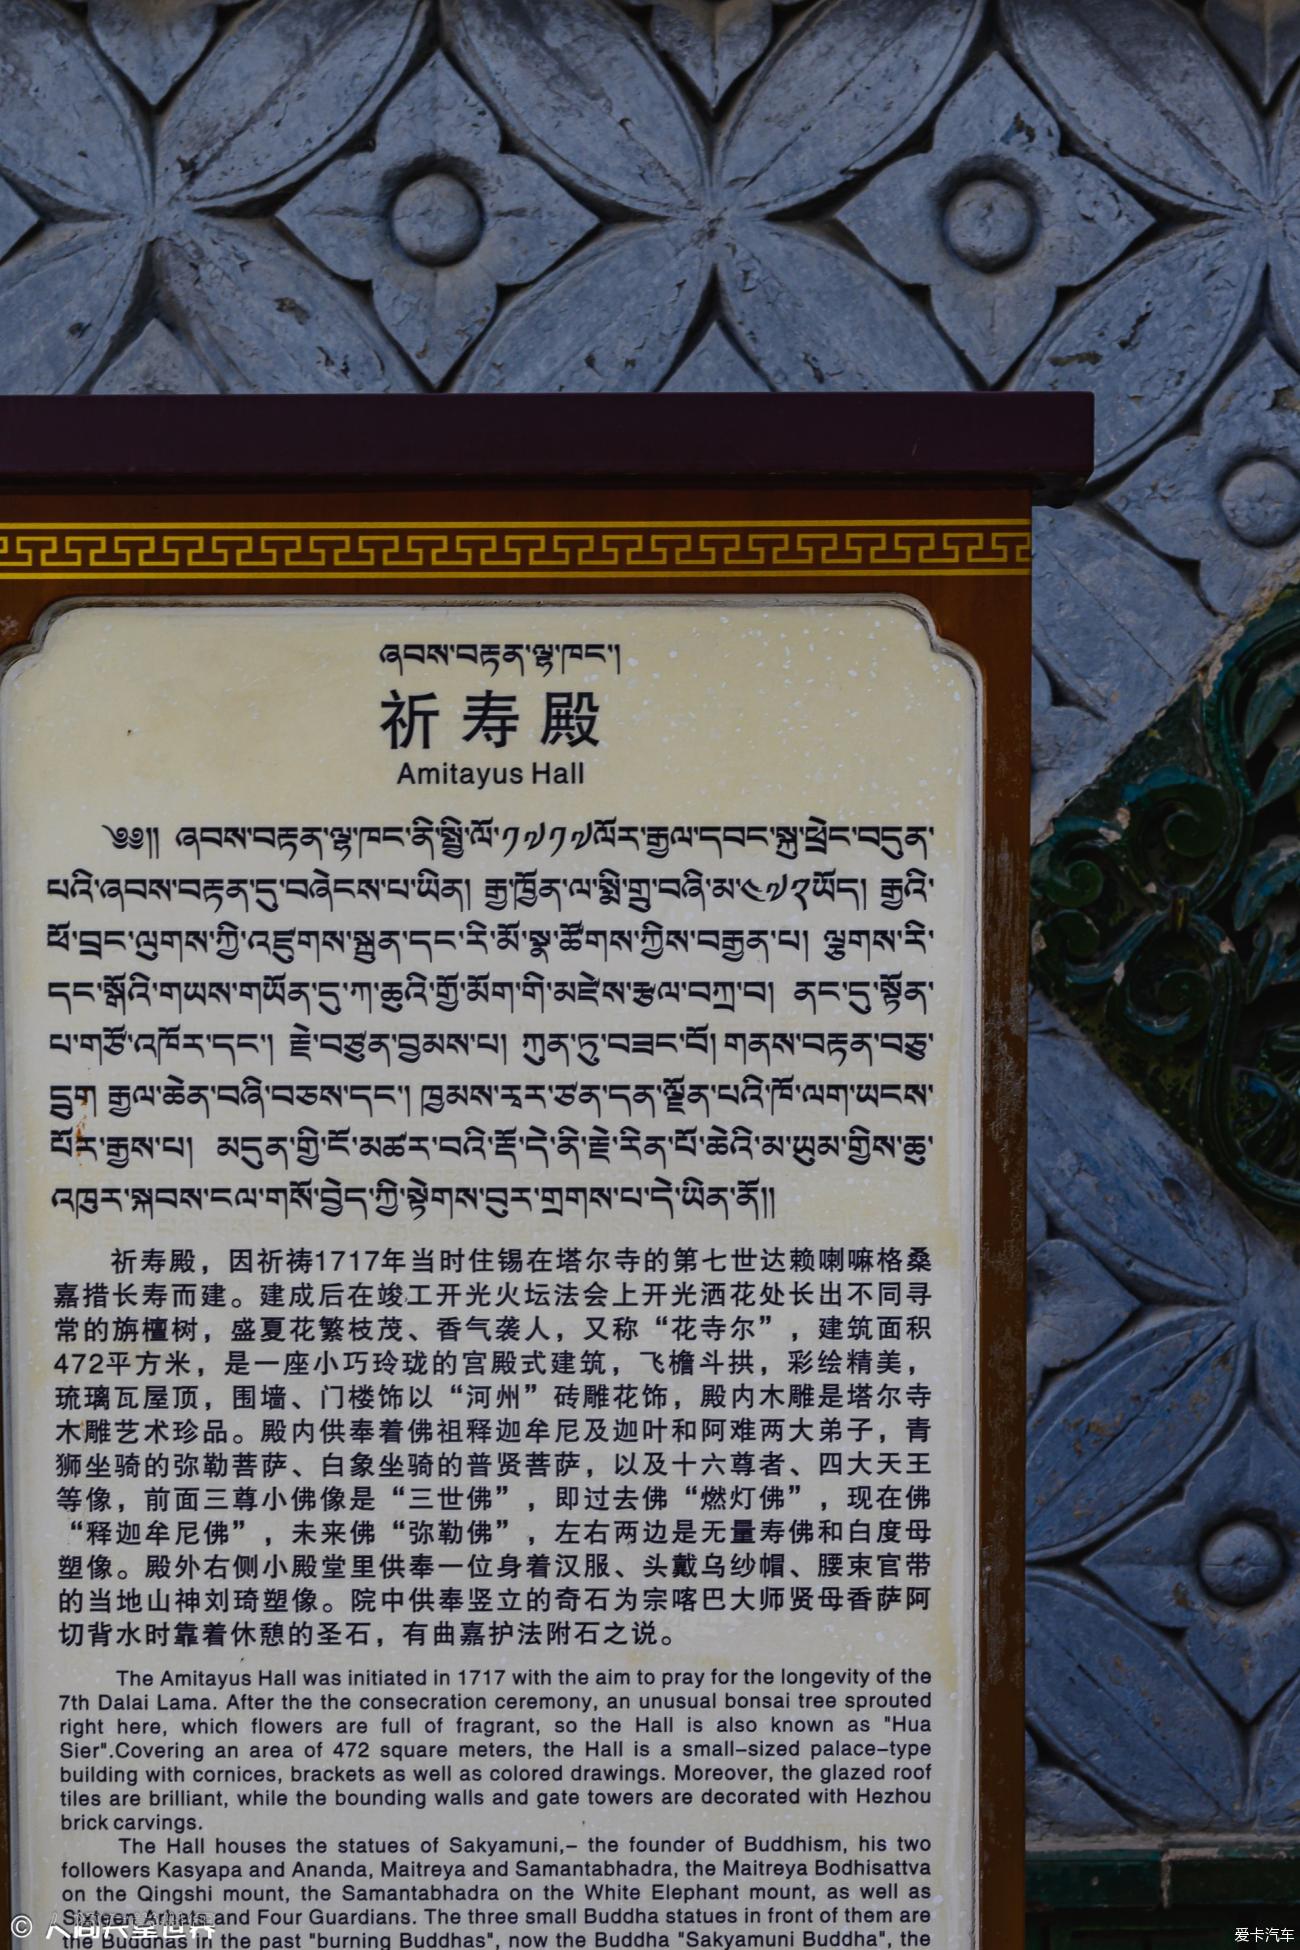 ཞབས་བརྟན་ལྷ་ཁང་།
祈寿殿
Amitayus Hall
༄༅།། ཞབས་བརྟན་ལྷ་ཁང་ནི་སྤྱི་ལོ་༡༧༡༧ལོར་རྒྱལ་དབང་སྐུ་ཕྲེང་བདུན་
པའི་ཞབས་བརྟན་དུ་བཞེངས་པ་ཡིན། རྒྱ་ཁྱོན་ལ་སྨི་གྲུ་བཞི་མ་༤༧༢ཡོད། རྒྱའི་
ཕོ་བྲང་ལུགས་ཀྱི་འཛུགས་སྐྲུན་དང་རི་མོ་སྣ་ཚོགས་ཀྱིས་བརྒྱན་པ། ལྕགས་རི་
དང་སྒོའི་གཡས་གཡོན་དུ་ཀ་ཆུའི་གྱོ་མོག་གི་མཛེས་རྩལ་བཀྲ་བ། ནང་དུ་སྟོན་
པ་གཙོ་འཁོར་དང་། རྗེ་བཙུན་བྱམས་པ། ཀུན་ཏུ་བཟང་པོ། གནས་བརྟན་བཅུ་
དྲུག རྒྱལ་ཆེན་བཞི་བཅས་དང་། ཁྱམས་རྭར་ཙན་དན་ལྗོན་པའི་ཁོ་ལག་ཡངས་
པོར་རྒྱས་པ། མདུན་གྱི་ངོ་མཚར་བའི་རྡོ་དེ་ནི་རྗེ་རིན་པོ་ཆེའི་མ་ཡུམ་གྱིས་ཆུ་
འཁུར་སྐབས་ངལ་གསོ་བྱེད་ཀྱི་སྟེགས་བུར་གྲགས་པ་དེ་ཡིན་ནོ།།
祈寿殿，因祈祷1717年当时住锡在塔尔寺的第七世达赖喇嘛格桑
嘉措长寿而建。建成后在竣工开光火坛法会上开光洒花处长出不同寻
常的旃檀树，盛夏花繁枝茂、香气袭人，又称“花寺尔”，建筑面积
472平方米，是一座小巧玲珑的宫殿式建筑，飞檐斗拱，彩绘精美，
琉璃瓦屋顶，围墙、门楼饰以“河州”砖雕花饰，殿内木雕是塔尔寺
木雕艺术珍品。殿内供奉着佛祖释迦牟尼及迦叶和阿难两大弟子，青
狮坐骑的弥勒菩萨、白象坐骑的普贤菩萨，以及十六尊者、四大天王
等像，前面三尊小佛像是“三世佛”，即过去佛“燃灯佛”，现在佛
“释迦牟尼佛”，未来佛“弥勒佛”，左右两边是无量寿佛和白度母
塑像。殿外右侧小殿堂里供奉一位身着汉服、头戴乌纱帽、腰束官带
的当地山神刘琦塑像。院中供奉竖立的奇石为宗喀巴大师贤母香萨阿
切背水时靠着休憩的圣石，有曲嘉护法附石之说。
The Amitayus Hall was initiated in 1717 with the aim to pray for the longevity of the
7th Dalai Lama. After the the consecration ceremony, an unusual bonsai tree sprouted
right here, which flowers are full of fragrant, so the Hall is also known as "Hua
Sier".Covering an area of 472 square meters, the Hall is a small-sized palace-type
building with cornices, brackets as well as colored drawings. Moreover, the glazed roof
tiles are brilliant, while the bounding walls and gate towers are decorated with Hezhou
brick carvings.
The Hall houses the statues of Sakyamuni,– the founder of Buddhism, his two
followers Kasyapa and Ananda, Maitreya and Samantabhadra, the Maitreya Bodhisattva
on the Qingshi mount, the Samantabhadra on the White Elephant mount, as well as
Sixteen Arhats and Four Guardians. The three small Buddha statues in front of them are
the Buddhas in the past "burning Buddhas", now the Buddha "Sakyamuni Buddha", the
© 人间天堂世界
爱卡汽车